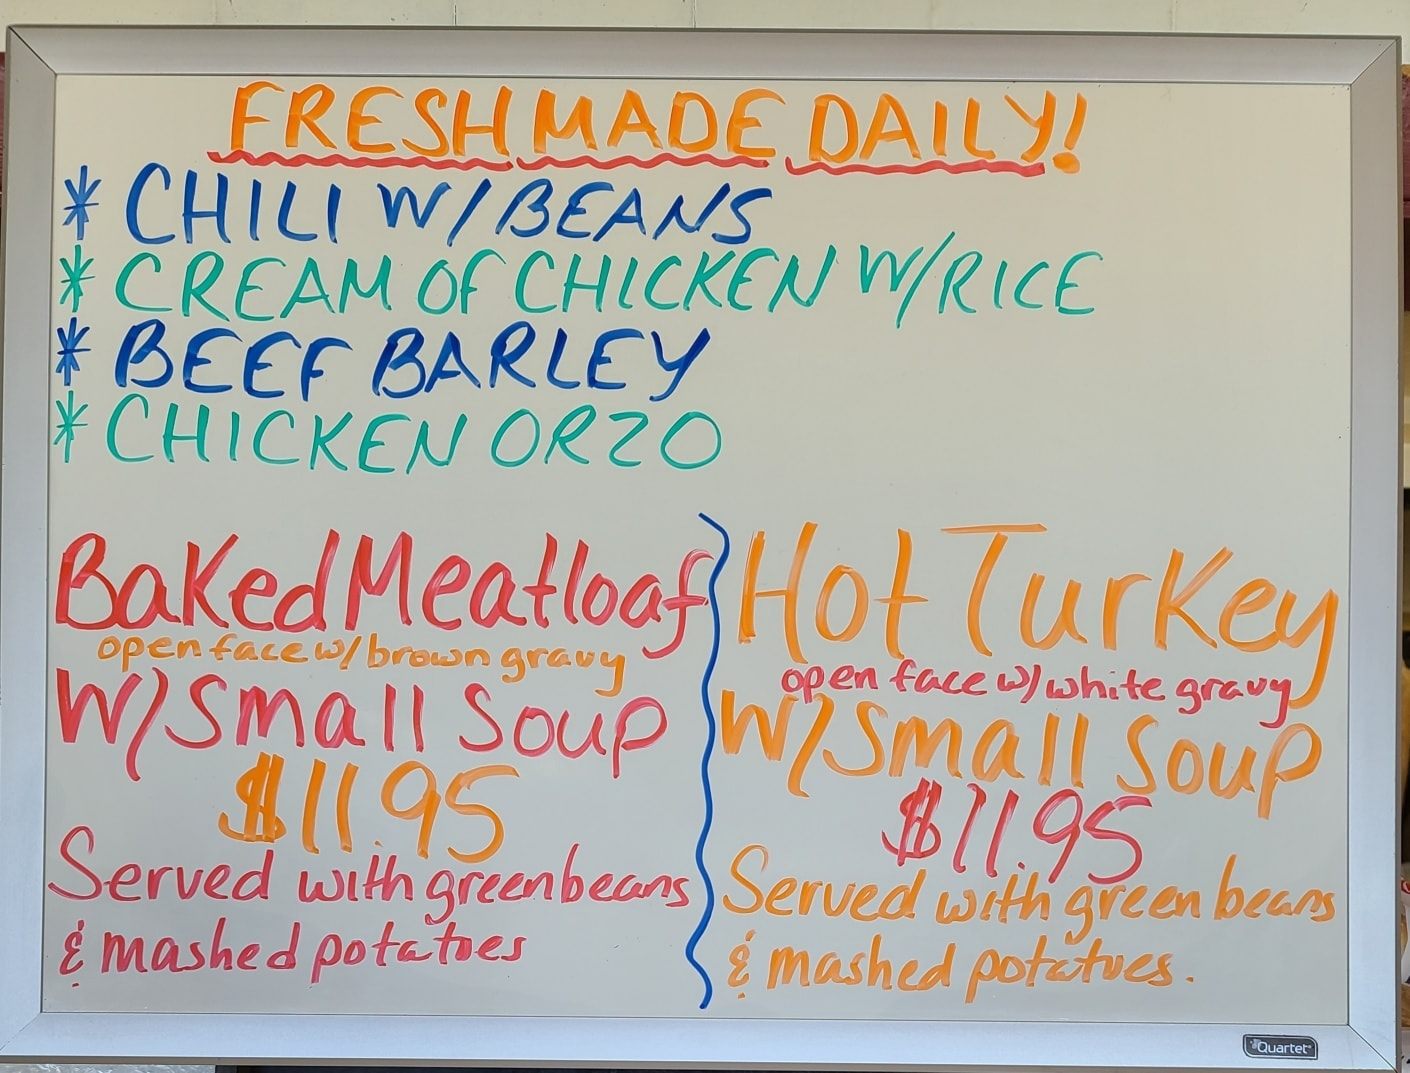 FRESH MADE DAILY!
* CHILI W/ BEANS
* CREAM OF CHICKEN W/ RICE
* BEEF BARLEY
* CHICKEN ORZO
Baked Meatloaf
open face w/ brown gravy
W/ Small Soup
$11.95
Served with green beans
& mashed potatoes
Hot Turkey
open face w/ white gravy
W/ Small Soup
$11.95
Served with green beans
& mashed potatoes.
Quartet